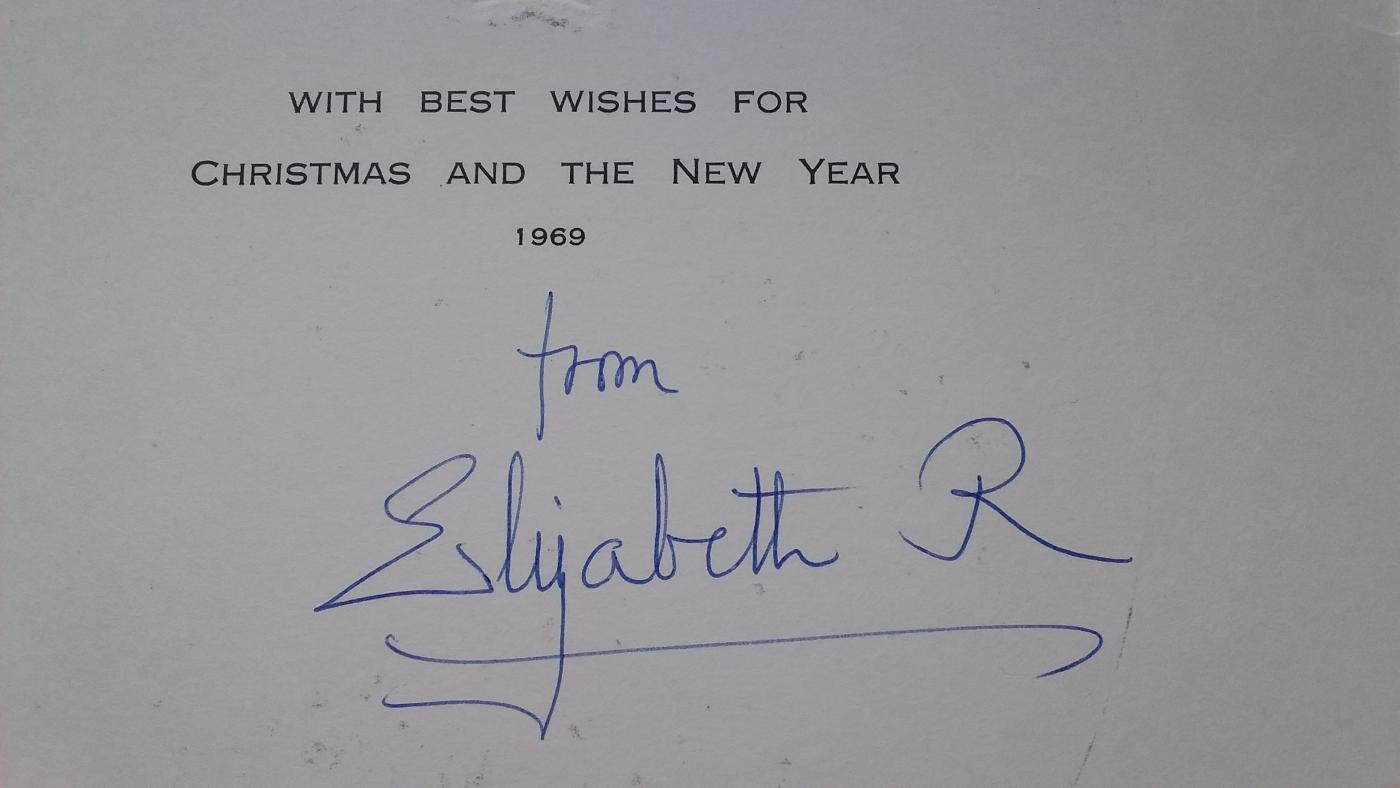 WITH BEST WISHES FOR
CHRISTMAS AND THE NEW YEAR
1969
from
Elizabeth R